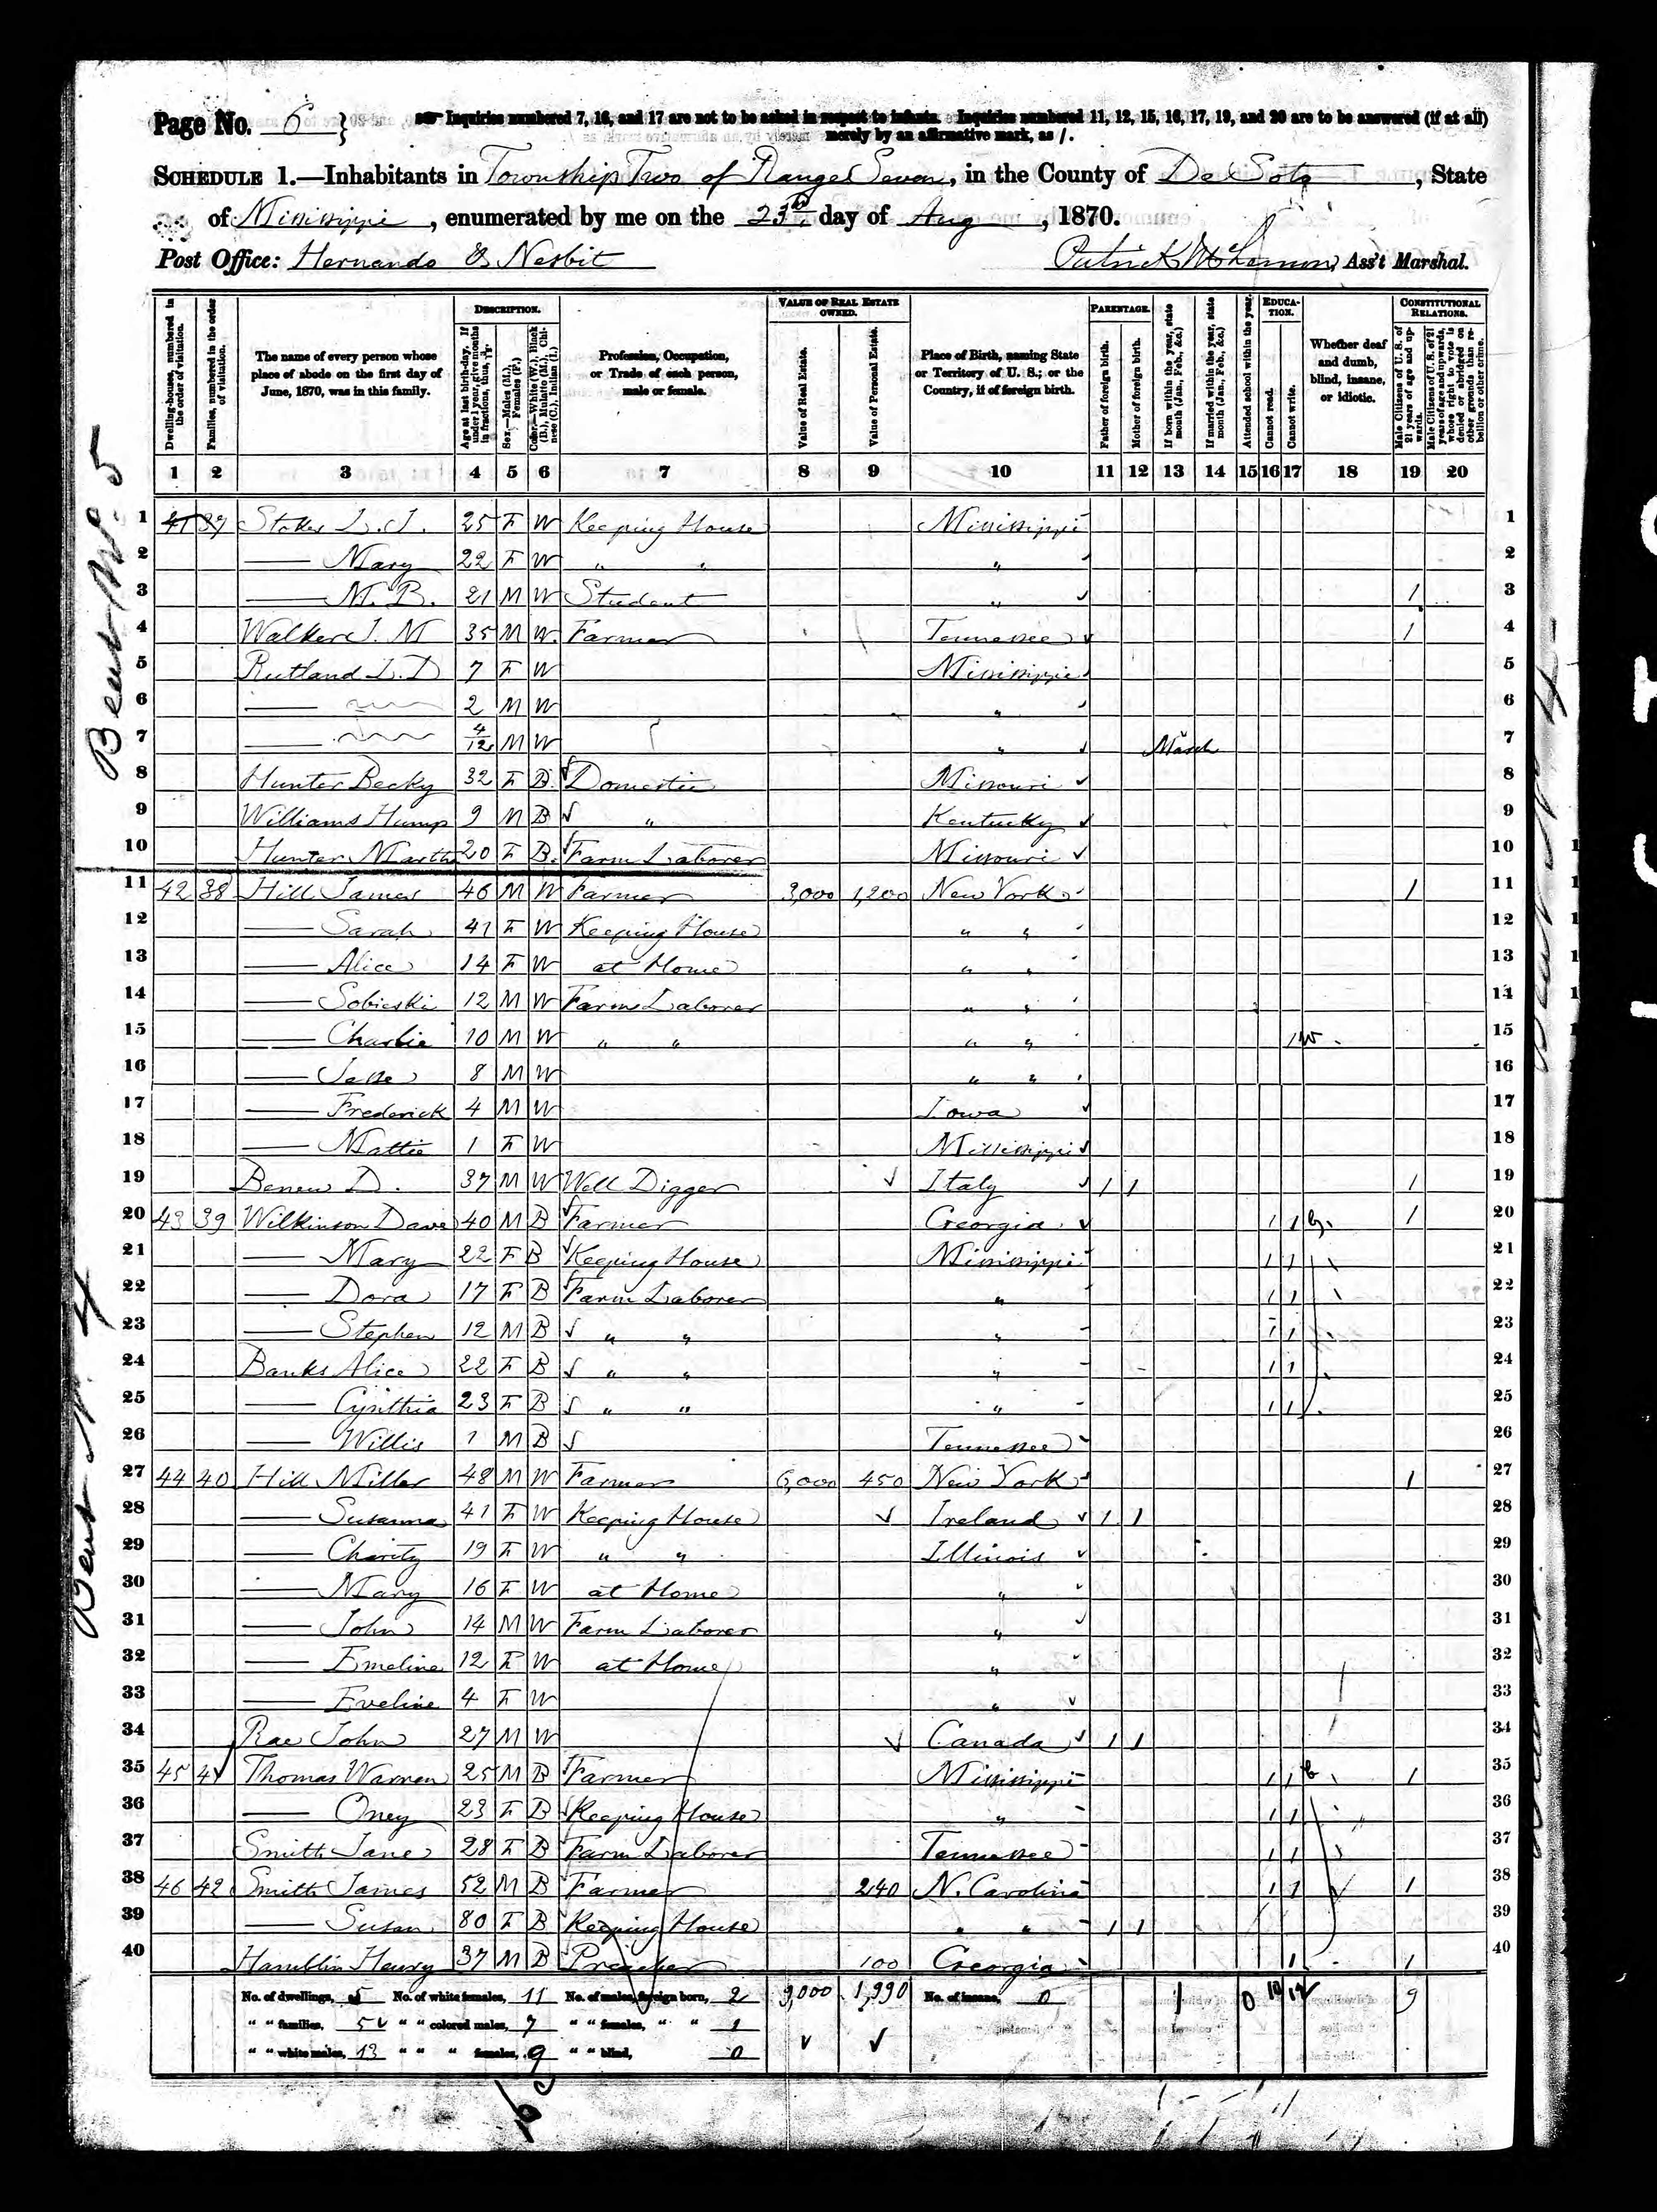 Page No. 6 }
Inquiries numbered 7, 16, and 17 are not to be asked in respect to infants. Inquiries numbered 11, 12, 15, 16, 17, 19, and 20 are to be answered (if at all)
merely by an affirmative mark, as /.
SCHEDULE 1.—Inhabitants in Township Two of Range Seven, in the County of De Soto, State
of Mississippi, enumerated by me on the 23rd day of Aug, 1870.
Post Office: Hernando & Nesbit
Patrick, Ass't Marshal.
Dwelling-houses, numbered in the order of visitation.
Families, numbered in the order of visitation.
The name of every person whose place of abode on the first day of June, 1870, was in this family.
DESCRIPTION.
Age at last birth-day. If under 1 year, give months in fractions, thus, 3/12.
Sex.—Males (M.), Females (F.)
Color.—White (W.), Black (B.), Mulatto (M.), Chinese (C.), Indian (I.)
Profession, Occupation, or Trade of each person, male or female.
VALUE OF REAL ESTATE OWNED.
Value of Real Estate.
Value of Personal Estate.
Place of Birth, naming State or Territory of U. S.; or the Country, if of foreign birth.
PARENTAGE.
Father of foreign birth.
Mother of foreign birth.
If born within the year, state month (Jan., Feb., &c.)
If married within the year, state month (Jan., Feb., &c.)
Attended school within the year.
EDUCATION.
Cannot read.
Cannot write.
Whether deaf and dumb, blind, insane, or idiotic.
CONSTITUTIONAL RELATIONS.
Male Citizens of U. S. of 21 years of age and upwards.
Male Citizens of U. S. of 21 years of age and upwards, whose right to vote is denied or abridged on other grounds than rebellion or other crime.
1 2 3 4 5 6 7 8 9 10 11 12 13 14 15 16 17 18 19 20
Beat No. 5
1 41 37 Stokes L. J. 25 F W Keeping House Mississippi 1
2 —— Mary 22 F W " " " 2
3 —— M. B. 21 M W Student " 1 3
4 Walker J. M 35 M W. Farmer Tennessee 1 4
5 Rutland L. D 7 F W Mississippi 5
6 —— 2 M W " 6
7 —— 4/12 M W " March 7
8 Hunter Becky 32 F B. Domestic Missouri 8
9 Williams Hump 9 M B " Kentucky 9
10 Hunter Martha 20 F B. Farm Laborer Missouri 10
11 42 38 Hill James 46 M W Farmer 3,000 1,200 New York 1 11
12 —— Sarah 41 F W Keeping House " " 12
13 —— Alice 14 F W at Home " " 13
14 —— Sobieski 12 M W Farm Laborer " " 14
15 —— Charlie 10 M W " " " " 1 W. 15
16 —— Jesse 8 M W " " 16
17 —— Frederick 4 M W Iowa 17
18 —— Mattie 1 F W Mississippi 18
19 D. 37 M W Well Digger Italy 1 1 1 19
20 43 39 Wilkinson Dave 40 M B Farmer Georgia 1 1 b. 1 20
21 —— Mary 22 F B Keeping House Mississippi 1 1 21
22 —— Dora 17 F B Farm Laborer " 1 1 22
23 —— Stephen 12 M B " " " 1 1 23
24 Banks Alice 22 F B " " " 1 1 24
25 —— Cynthia 23 F B " " " 1 1 25
26 —— Willis 1 M B Tennessee 26
27 44 40 Hill Miller 48 M W Farmer 6,000 450 New York 1 27
28 —— Susanna 41 F W Keeping House Ireland 1 1 28
29 —— Charity 19 F W " " Illinois 29
30 —— Mary 16 F W at Home " 30
31 —— John 14 M W Farm Laborer " 31
32 —— Emeline 12 F W at Home " 32
33 —— Eveline 4 F W " 33
34 Rae John 27 M W Canada 1 1 34
35 45 41 Thomas Warren 25 M B Farmer Mississippi 1 1 b 1 35
36 —— Oney 23 F B Keeping House " 1 1 36
37 Smith Jane 28 F B Farm Laborer Tennessee 1 1 37
38 46 42 Smith James 52 M B Farmer 240 N. Carolina 1 1 1 38
39 —— Susan 80 F B Keeping House " " 1 1 39
40 Hamblin Henry 37 M B Preacher 100 Georgia 1 1 40
Beat No. 4
No. of dwellings, 5 No. of white females, 11 No. of males, foreign born, 2 9,000 1,990 No. of insane, 0 1 0 9
" " families, 5 " " colored males, 7 " " females, " " 1
" " white males, 13 " " " females, 9 " " blind, 0